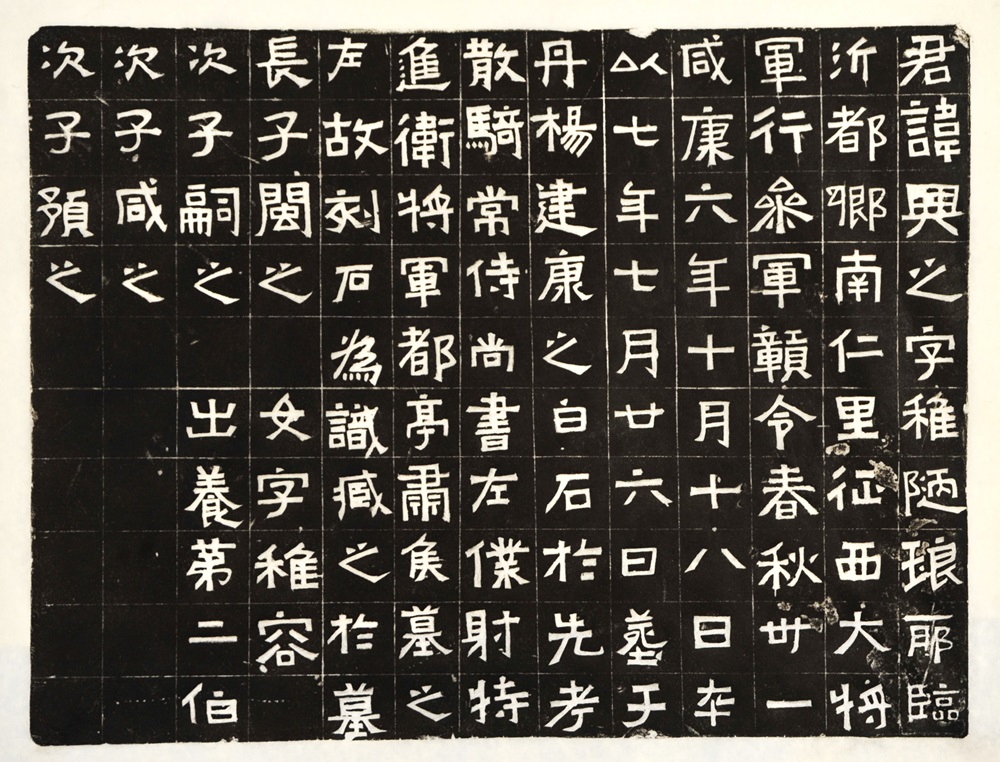 君諱興之字稚陋琅耶臨
沂都鄉南仁里征西大將
軍行參軍贛令春秋卅一
咸康六年十月十八日卒
以七年七月廿六日塟于
丹楊建康之白石於先考
散騎常侍尚書左僕射特
進衛將軍都亭肅侯墓之
左故刻石為識臧之於墓
長子閩之 女字稚容
次子嗣之 出養第二伯
次子咸之
次子預之